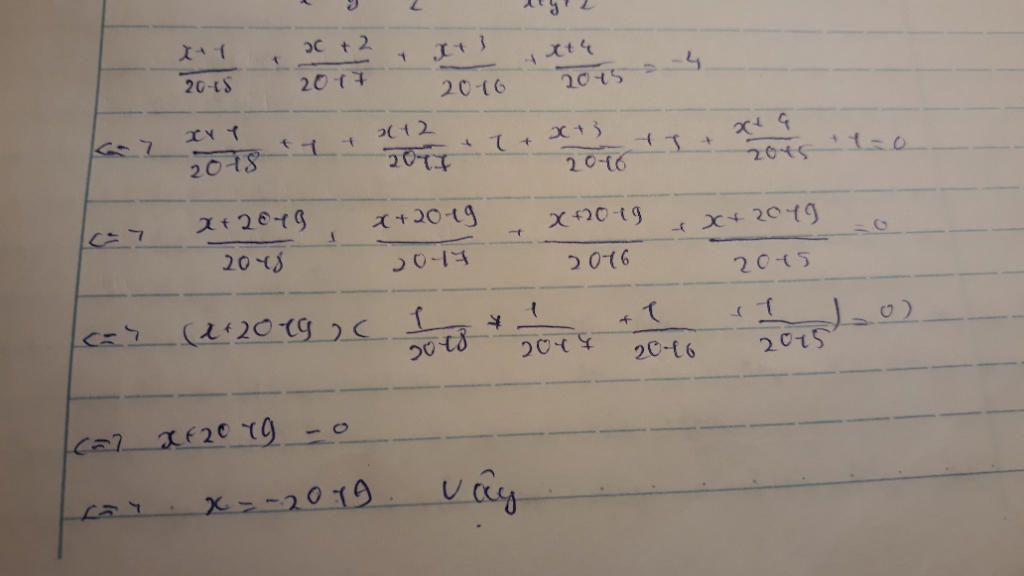 x+1/2018 + x+2/2017 + x+3/2016 + x+4/2015 = -4
<=> x+1/2018 + 1 + x+2/2017 + 1 + x+3/2016 + 1 + x+4/2015 + 1 = 0
<=> x+2019/2018 + x+2019/2017 + x+2019/2016 + x+2019/2015 = 0
<=> (x+2019)(1/2018 + 1/2017 + 1/2016 + 1/2015) = 0)
<=> x+2019 = 0
<=> x = -2019. Vậy